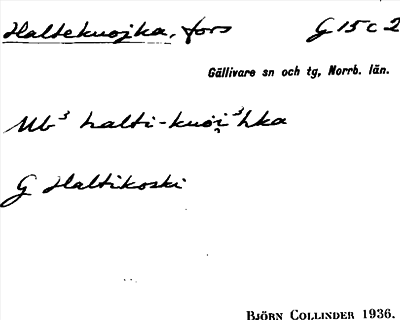 Haltekuojka, fors G 15 c 2
Gällivare sn och tg, Norrb. län.
Mb³ halti-kuöi̯³hka
G Haltikoski
BJÖRN COLLINDER 1936.